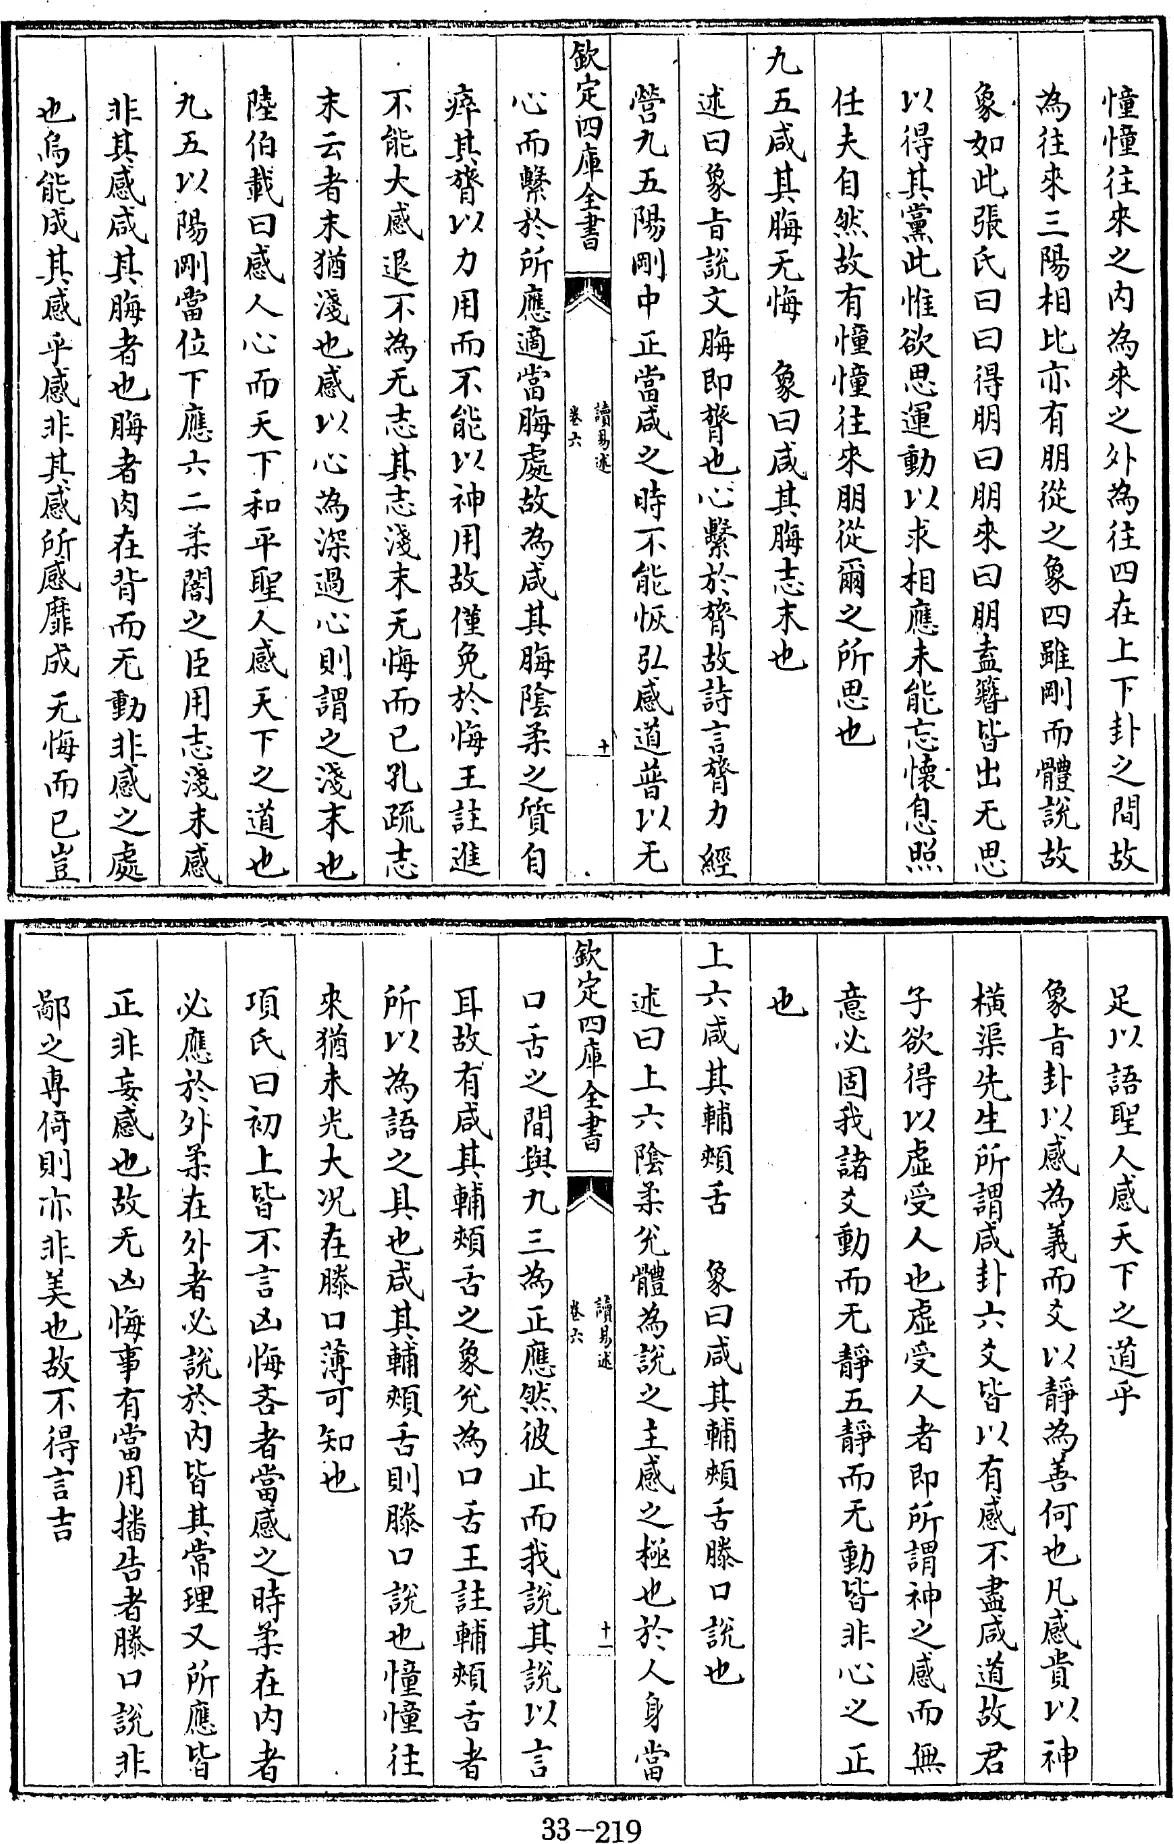 憧憧往來之内為來之外為往四在上下卦之間故
為往來三陽相比亦有朋從之象四雖剛而體說故
象如此張氏曰曰得朋曰朋來曰朋盍簪皆出无思
以得其黨此惟欲思運動以求相應未能忘懷息照
任夫自然故有憧憧往來朋從爾之所思也
九五咸其脢无悔　象曰咸其脢志末也
述曰象旨說文脢即膂也心繫於膂故詩言膂力經
營九五陽剛中正當咸之時不能恢弘感道普以无
欽定四庫全書
讀易述
卷六
十
心而繫於所應適當脢處故為咸其脢陰柔之質自
瘁其膂以力用而不能以神用故僅免於悔王註進
不能大感退不為无志其志淺末无悔而已孔疏志
末云者末猶淺也感以心為深過心則謂之淺末也
陸伯載曰感人心而天下和平聖人感天下之道也
九五以陽剛當位下應六二柔闇之臣用志淺末感
非其感咸其脢者也脢者肉在背而无動非感之處
也烏能成其感乎感非其感所感靡成无悔而已豈
足以語聖人感天下之道乎
象旨卦以感為義而爻以靜為善何也凡感貴以神
橫渠先生所謂咸卦六爻皆以有感不盡咸道故君
子欲得以虛受人也虛受人者即所謂神之感而無
意必固我諸爻動而无靜五靜而无動皆非心之正
也
上六咸其輔頰舌　象曰咸其輔頰舌滕口說也
述曰上六陰柔兊體為說之主感之極也於人身當
欽定四庫全書
讀易述
卷六
十一
口舌之間與九三為正應然彼止而我說其說以言
耳故有咸其輔頰舌之象兊為口舌王註輔頰舌者
所以為語之具也咸其輔頰舌則滕口說也憧憧往
來猶未光大况在滕口薄可知也
項氏曰初上皆不言凶悔吝者當感之時柔在内者
必應於外柔在外者必說於内皆其常理又所應皆
正非妄感也故无凶悔事有當用播告者滕口說非
鄙之專倚則亦非美也故不得言吉
33-219